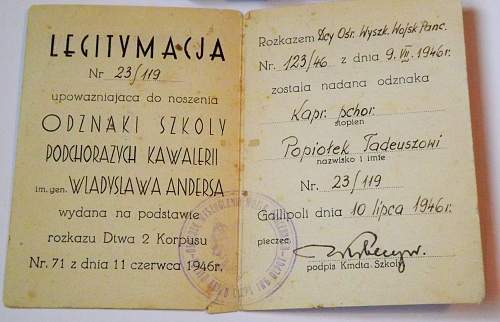 LEGITYMACJA
Nr 23/119
upoważniająca do noszenia
ODZNAKI SZKOŁY
PODCHORĄŻYCH KAWALERII
im. gen. WŁADYSŁAWA ANDERSA
wydana na podstawie
rozkazu Dtwa 2 Korpusu
Nr. 71 z dnia 11 czerwca 1946r.
Rozkazem Dcy Ośr. Wyszk. Wojsk Panc.
Nr. 123/46 z dnia 9. VII. 1946r.
została nadana odznaka
Kapr. pchor.
stopień
Popiołek Tadeuszowi
nazwisko i imię
Nr. 23/119
Gallipoli dnia 10 lipca 1946r.
pieczęć
podpis Kmdta Szkoły